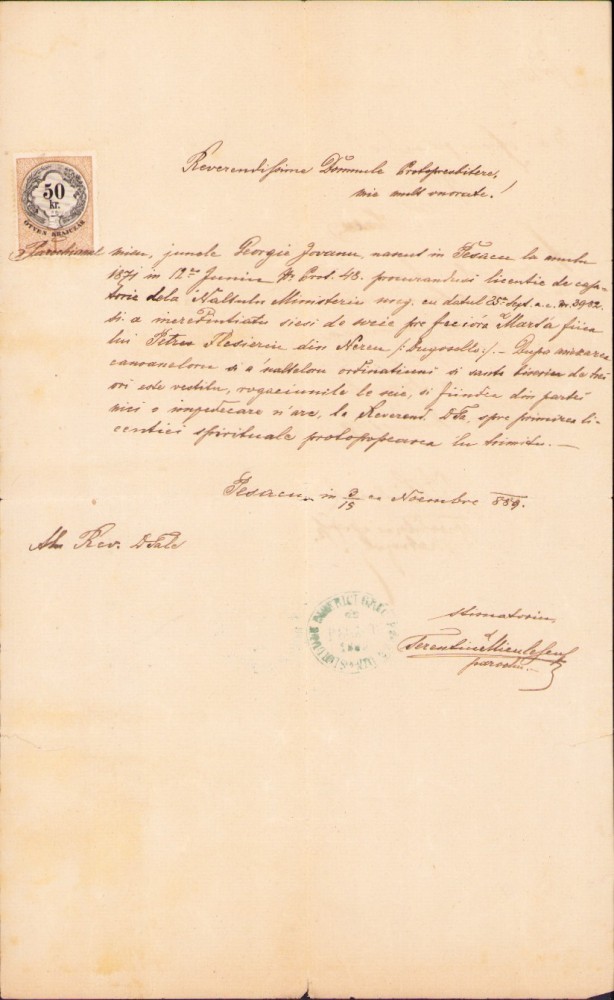 50
kr.
ÖTVEN KRAJCZÁR
Reverendissime Domnule Protopresbitere,
mie mult onorate!
Parochianul mieu, junele Georgie Jovanu, nascut in Pesacu la anulu
1871 in 12 Juniu Nr. Prot. 48. procurandusi licentie de casa-
torie dela Naltulu Ministeriu ung. cu datul 25 Sept. a. c. Nr. 3902.
si a incredintiatu siesi de socie pre fecióra Marta fiica
lui Petru din Nereu - Dupa
canoaneloru si a naltelou ordinatiuni si sante biserica de trei
ori este vestitu, rogaciunile le scie, si fiindca din parte
nici o impedecare n'are, la Reverend. DTa, spre primirea li-
centiei spirituale protopopeasca lu trimitu. —
Pesacu, in 3/15 Noembre 889.
Rev. DTale
stimatoriu,
Terentiu
parochu